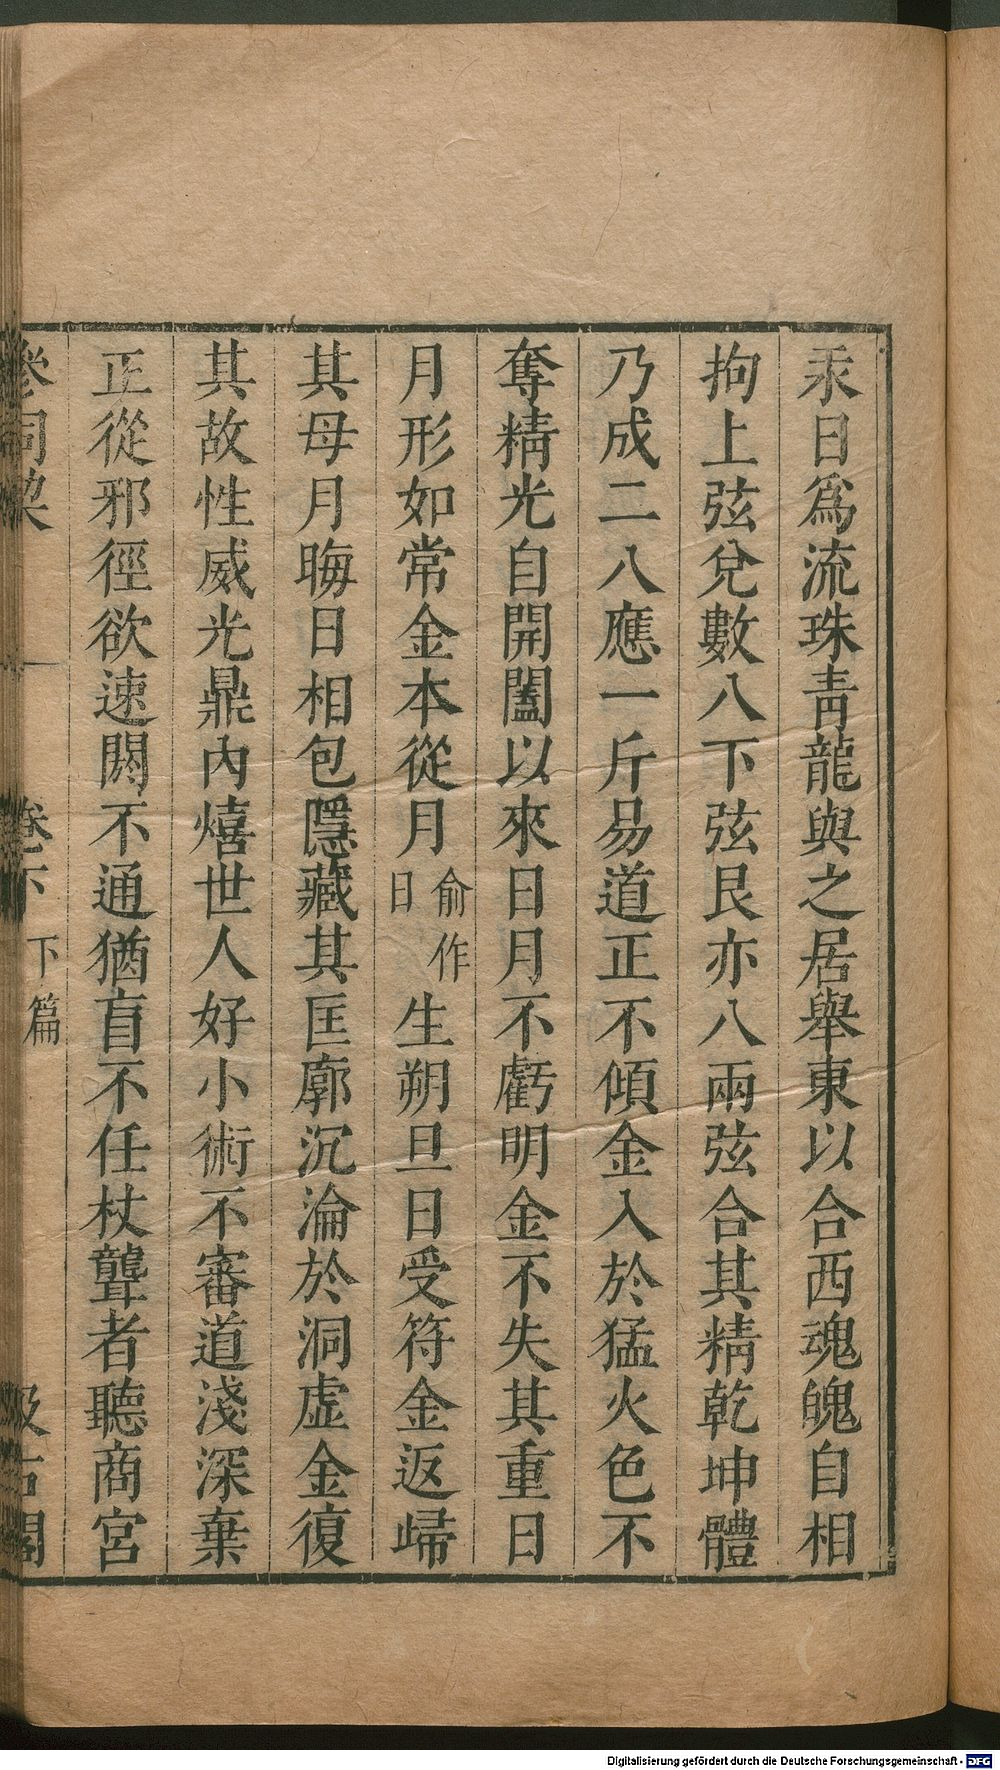 汞日爲流珠青龍與之居舉東以合西魂魄自相
拘上弦兌數八下弦艮亦八兩弦合其精乾坤體
乃成二八應一斤易道正不傾金入於猛火色不
奪精光自開闔以來日月不虧明金不失其重日
月形如常金本從月俞作日生朔旦日受符金返歸
其母月晦日相包隱藏其匡廓沉淪於洞虛金復
其故性威光鼎內熺世人好小術不審道淺深棄
正從邪徑欲速閼不通猶盲不任杖聾者聽商宮
參同契 卷下 下篇 汲古閣
Digitalisierung gefördert durch die Deutsche Forschungsgemeinschaft - DFG